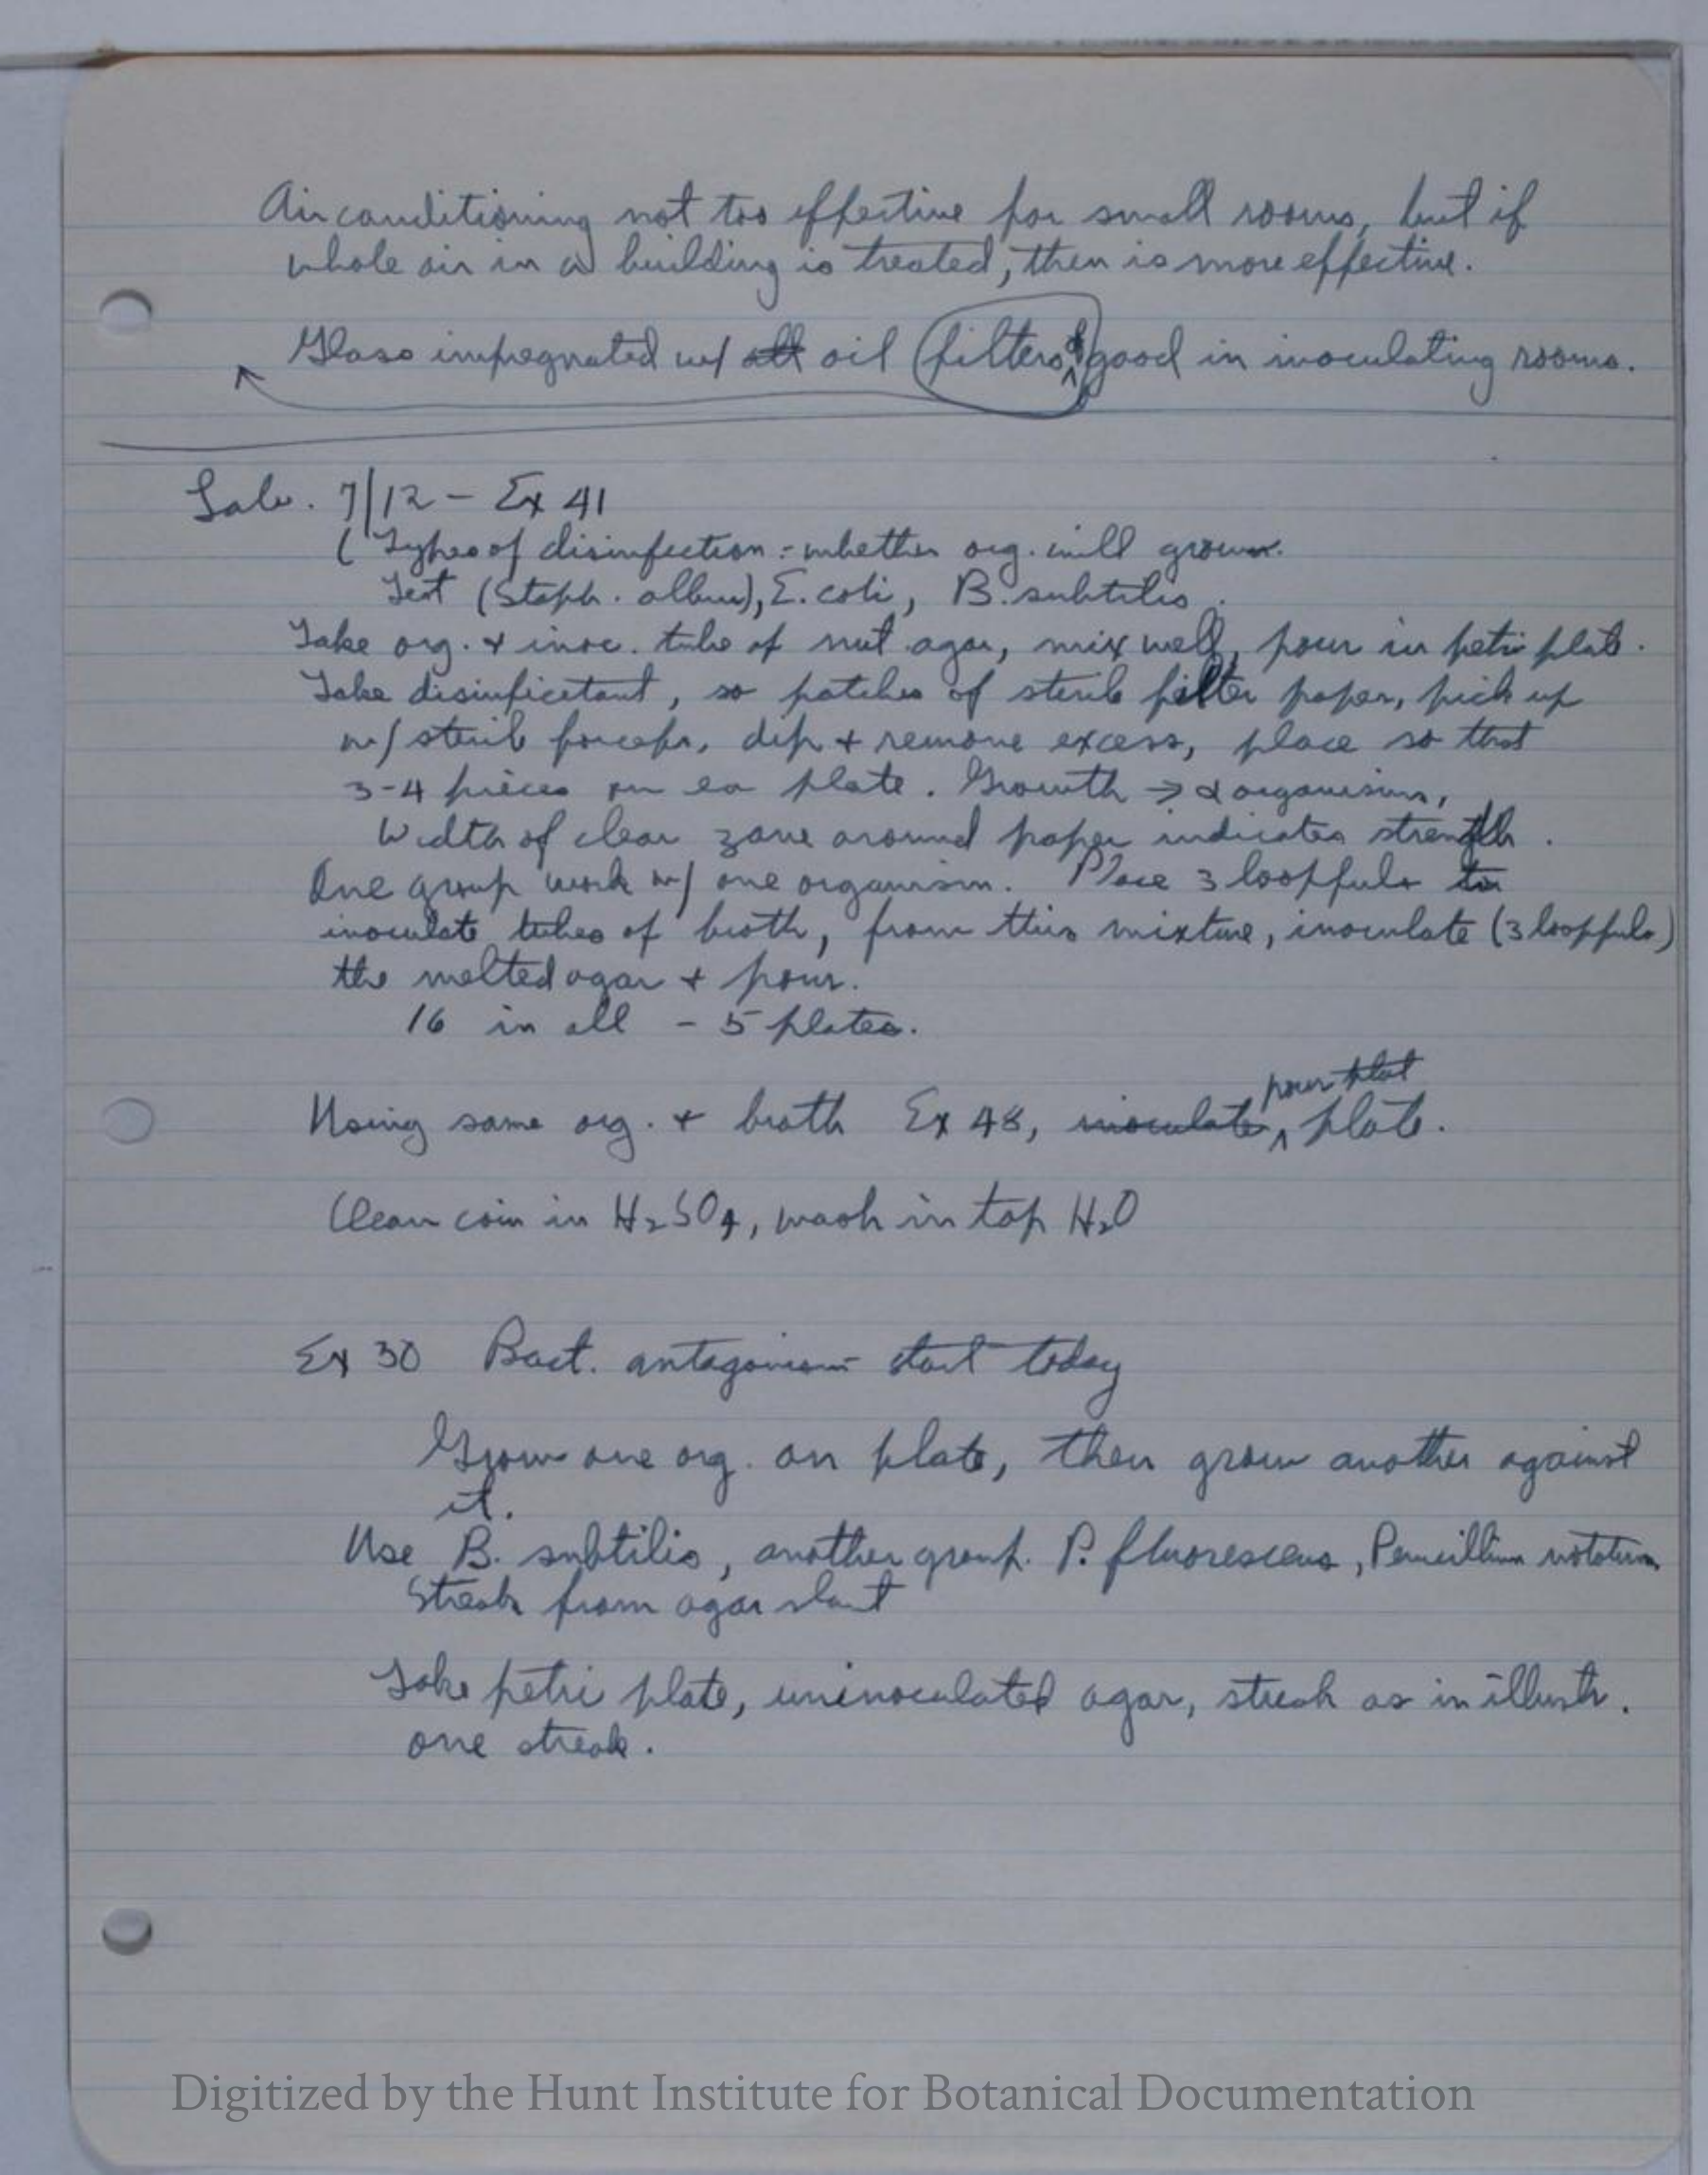 Air conditioning not too effective for small rooms, but if
whole air in a building is treated, then is more effective.
Glass impregnated w/ oil filters & good in inoculating rooms.
Lab. 7/12 - Ex 41
( Types of disinfection - whether org. will grow.
Test (Staph. albus), E. coli, B. subtilis.
Take org. + inoc. tube of nut agar, mix well, pour in petri plate.
Take disinficetant, so patches of sterile filter paper, pick up
w/ sterile forceps, dip + remove excess, place so that
3-4 pieces on ea plate. Growth → organism,
Width of clear zone around paper indicates strength.
One group work w/ one organism. Place 3 loopfuls to
inoculate tubes of broth, from this mixture, inoculate (3 loopfuls)
the melted agar + pour.
16 in all - 5 plates.
pour plat
Using same org. + broth Ex 48, inoculate plate.
Clean coin in H₂SO₄, wash in tap H₂O
Ex 30 Bact. antagonism start today
Grow one org. on plate, then grow another against
it.
Use B. subtilis, another group. P. fluorescens, Penicillium notatum
Streak from agar slant
Take petri plate, uninoculated agar, streak as in illustr.
one streak.
Digitized by the Hunt Institute for Botanical Documentation